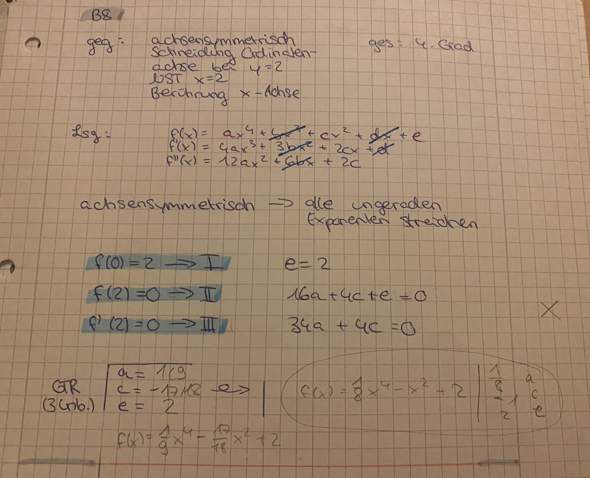 B8
geg: achsensymmetrisch ges: 4. Grad
Schneidung Ordinaten-
achse bei y=2
NST x=2
Berührung x-Achse
Lsg: f(x) = ax⁴ + bx³ + cx² + dx + e
f'(x) = 4ax³ + 3bx² + 2cx + d
f''(x) = 12ax² + 6bx + 2c
achsensymmetrisch → alle ungeraden
Exponenten streichen
f(0)=2 → I e=2
f(2)=0 → II 16a+4c+e=0
f'(2)=0 → III 34a+4c=0
GTR a = 1/9
(3 Unb.) c = -17/18
e = 2
f(x)=1/8x⁴-x²+2 1/8 a
-1 c
2 e
f(x)=1/9x⁴-17/18x²+2